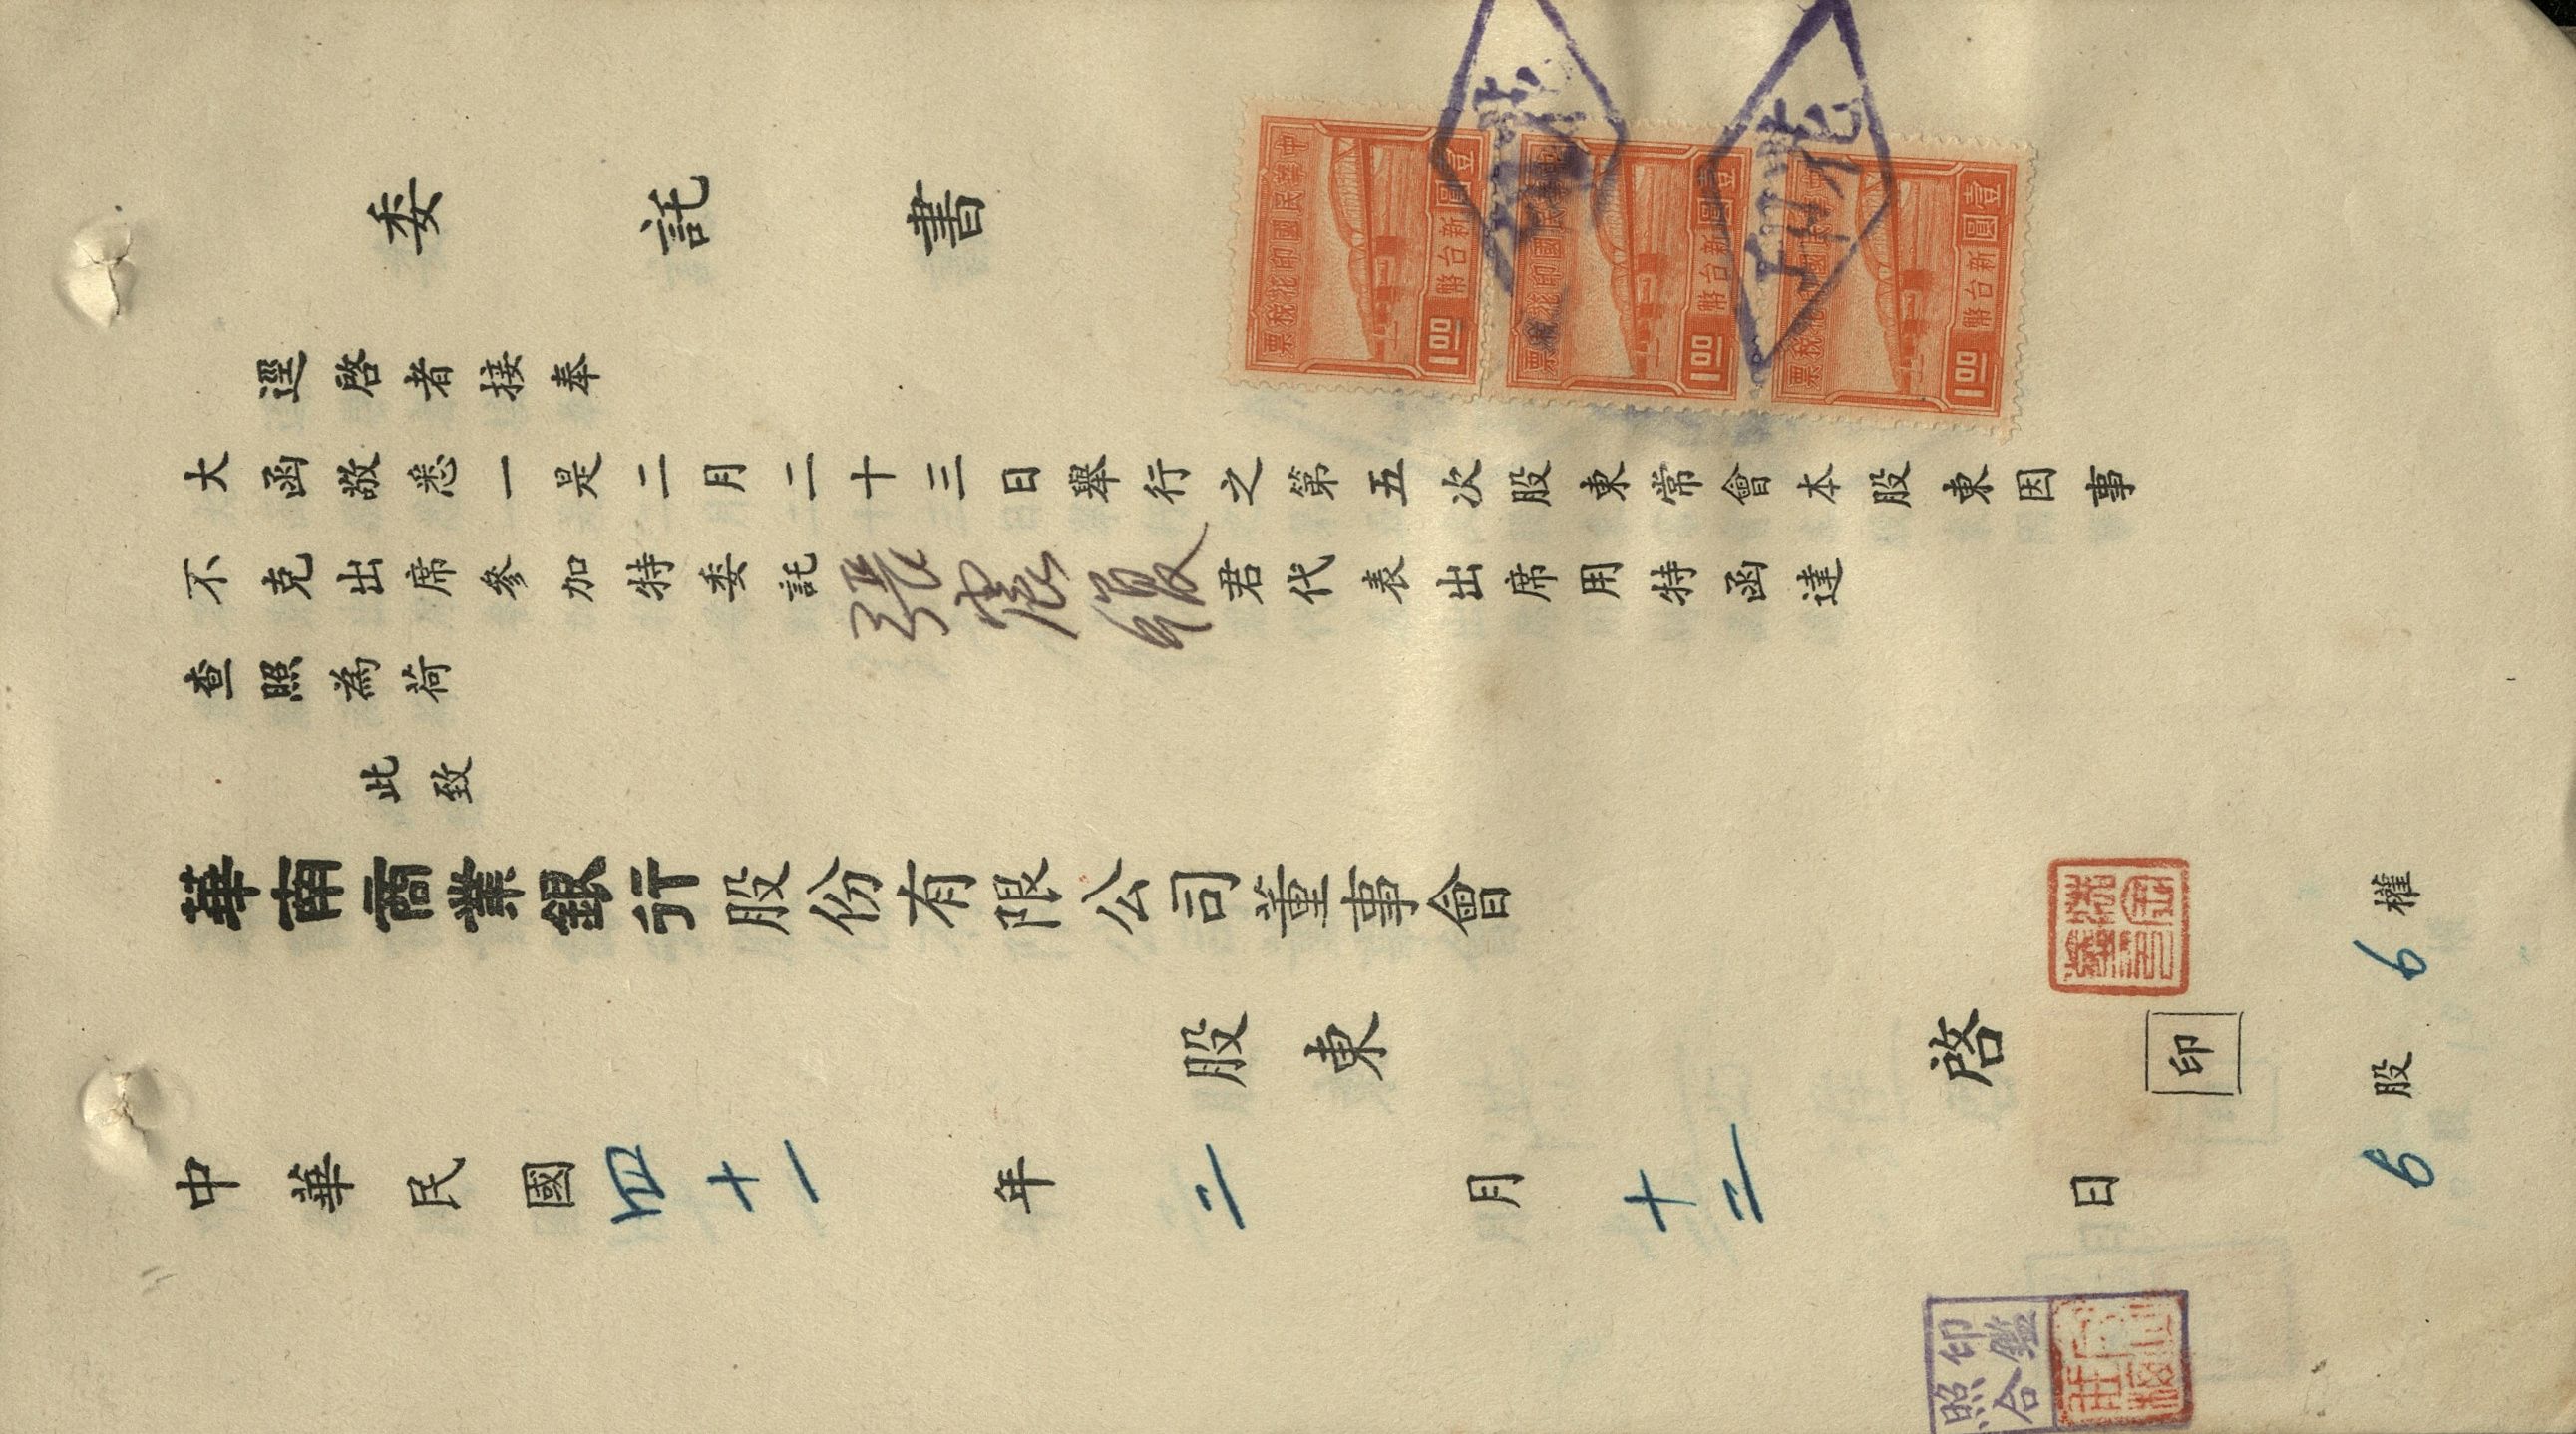 委託書
逕啓者接奉
大函敬悉一是二月二十三日舉行之第五次股東常會本股東因事
不克出席參加特委託張君代表出席用特函達
查照為荷
此致
華南商業銀行股份有限公司董事會
股東 啓 印
中華民國四十一年二月十二日
6股6權
中華民國印花稅票
壹圓
新台幣
1.00
中華民國印花稅票
壹圓
新台幣
1.00
中華民國印花稅票
壹圓
新台幣
1.00
印鑑
照合